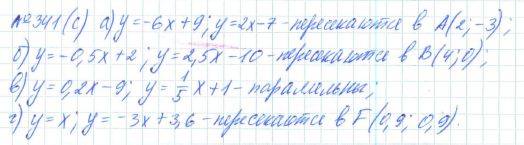 №341(с) а) y=-6x+9; y=2x-7 - пересекаются в A(2;-3);
б) y=-0,5x+2; y=2,5x-10 - пересекаются в B(4;0);
в) y=0,2x-9; y=1/5x+1 - параллельны;
г) y=x; y=-3x+3,6 - пересекаются в F(0,9; 0,9).